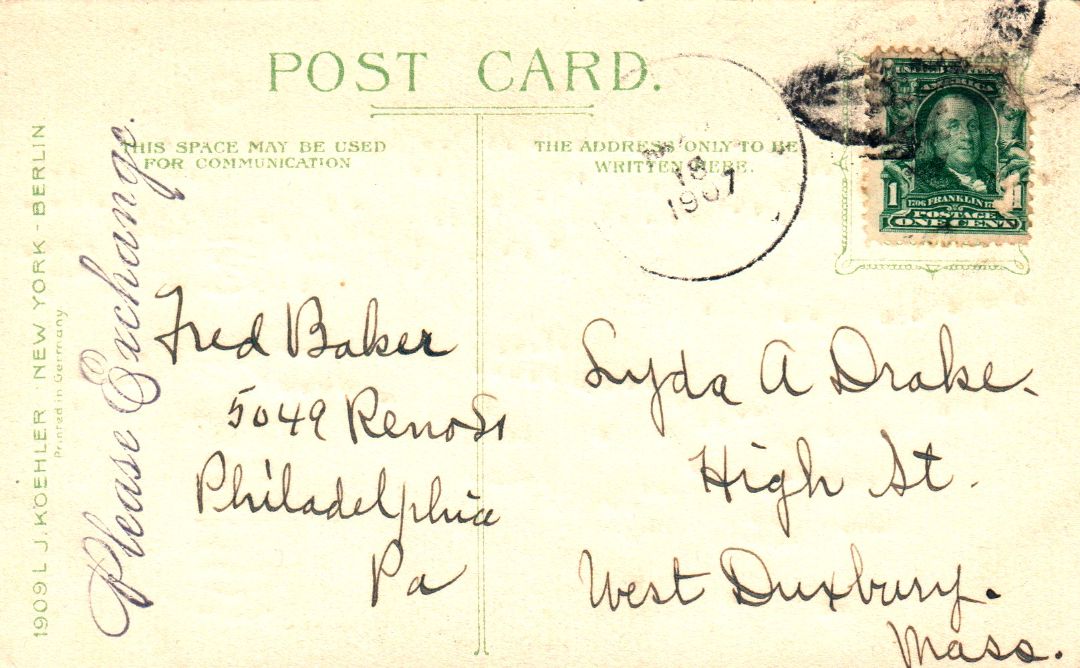 POST CARD.
THIS SPACE MAY BE USED
FOR COMMUNICATION
THE ADDRESS ONLY TO BE
WRITTEN HERE.
18
1907
UNITED STATES
AMERICA
1 1
FRANKLIN
POSTAGE
ONE CENT
1909 L J. KOEHLER NEW YORK - BERLIN
Printed in Germany
Please Exchange.
Fred Baker
5049 Reno St
Philadelphia
Pa
Lyda A Drake.
High St.
West Duxbury.
Mass.